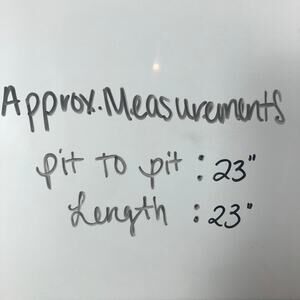 Approx. Measurements
pit to pit : 23"
Length : 23"